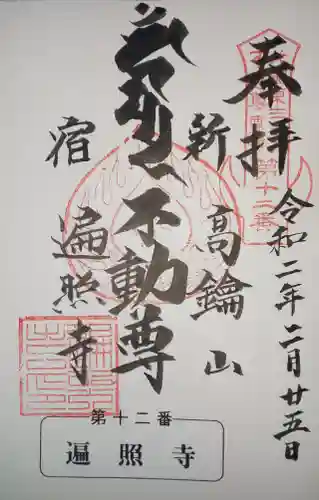 奉拝
令和二年二月廿五日
新宿
不動尊
高鑰山
遍照寺
第十二番
第十二番
遍照寺